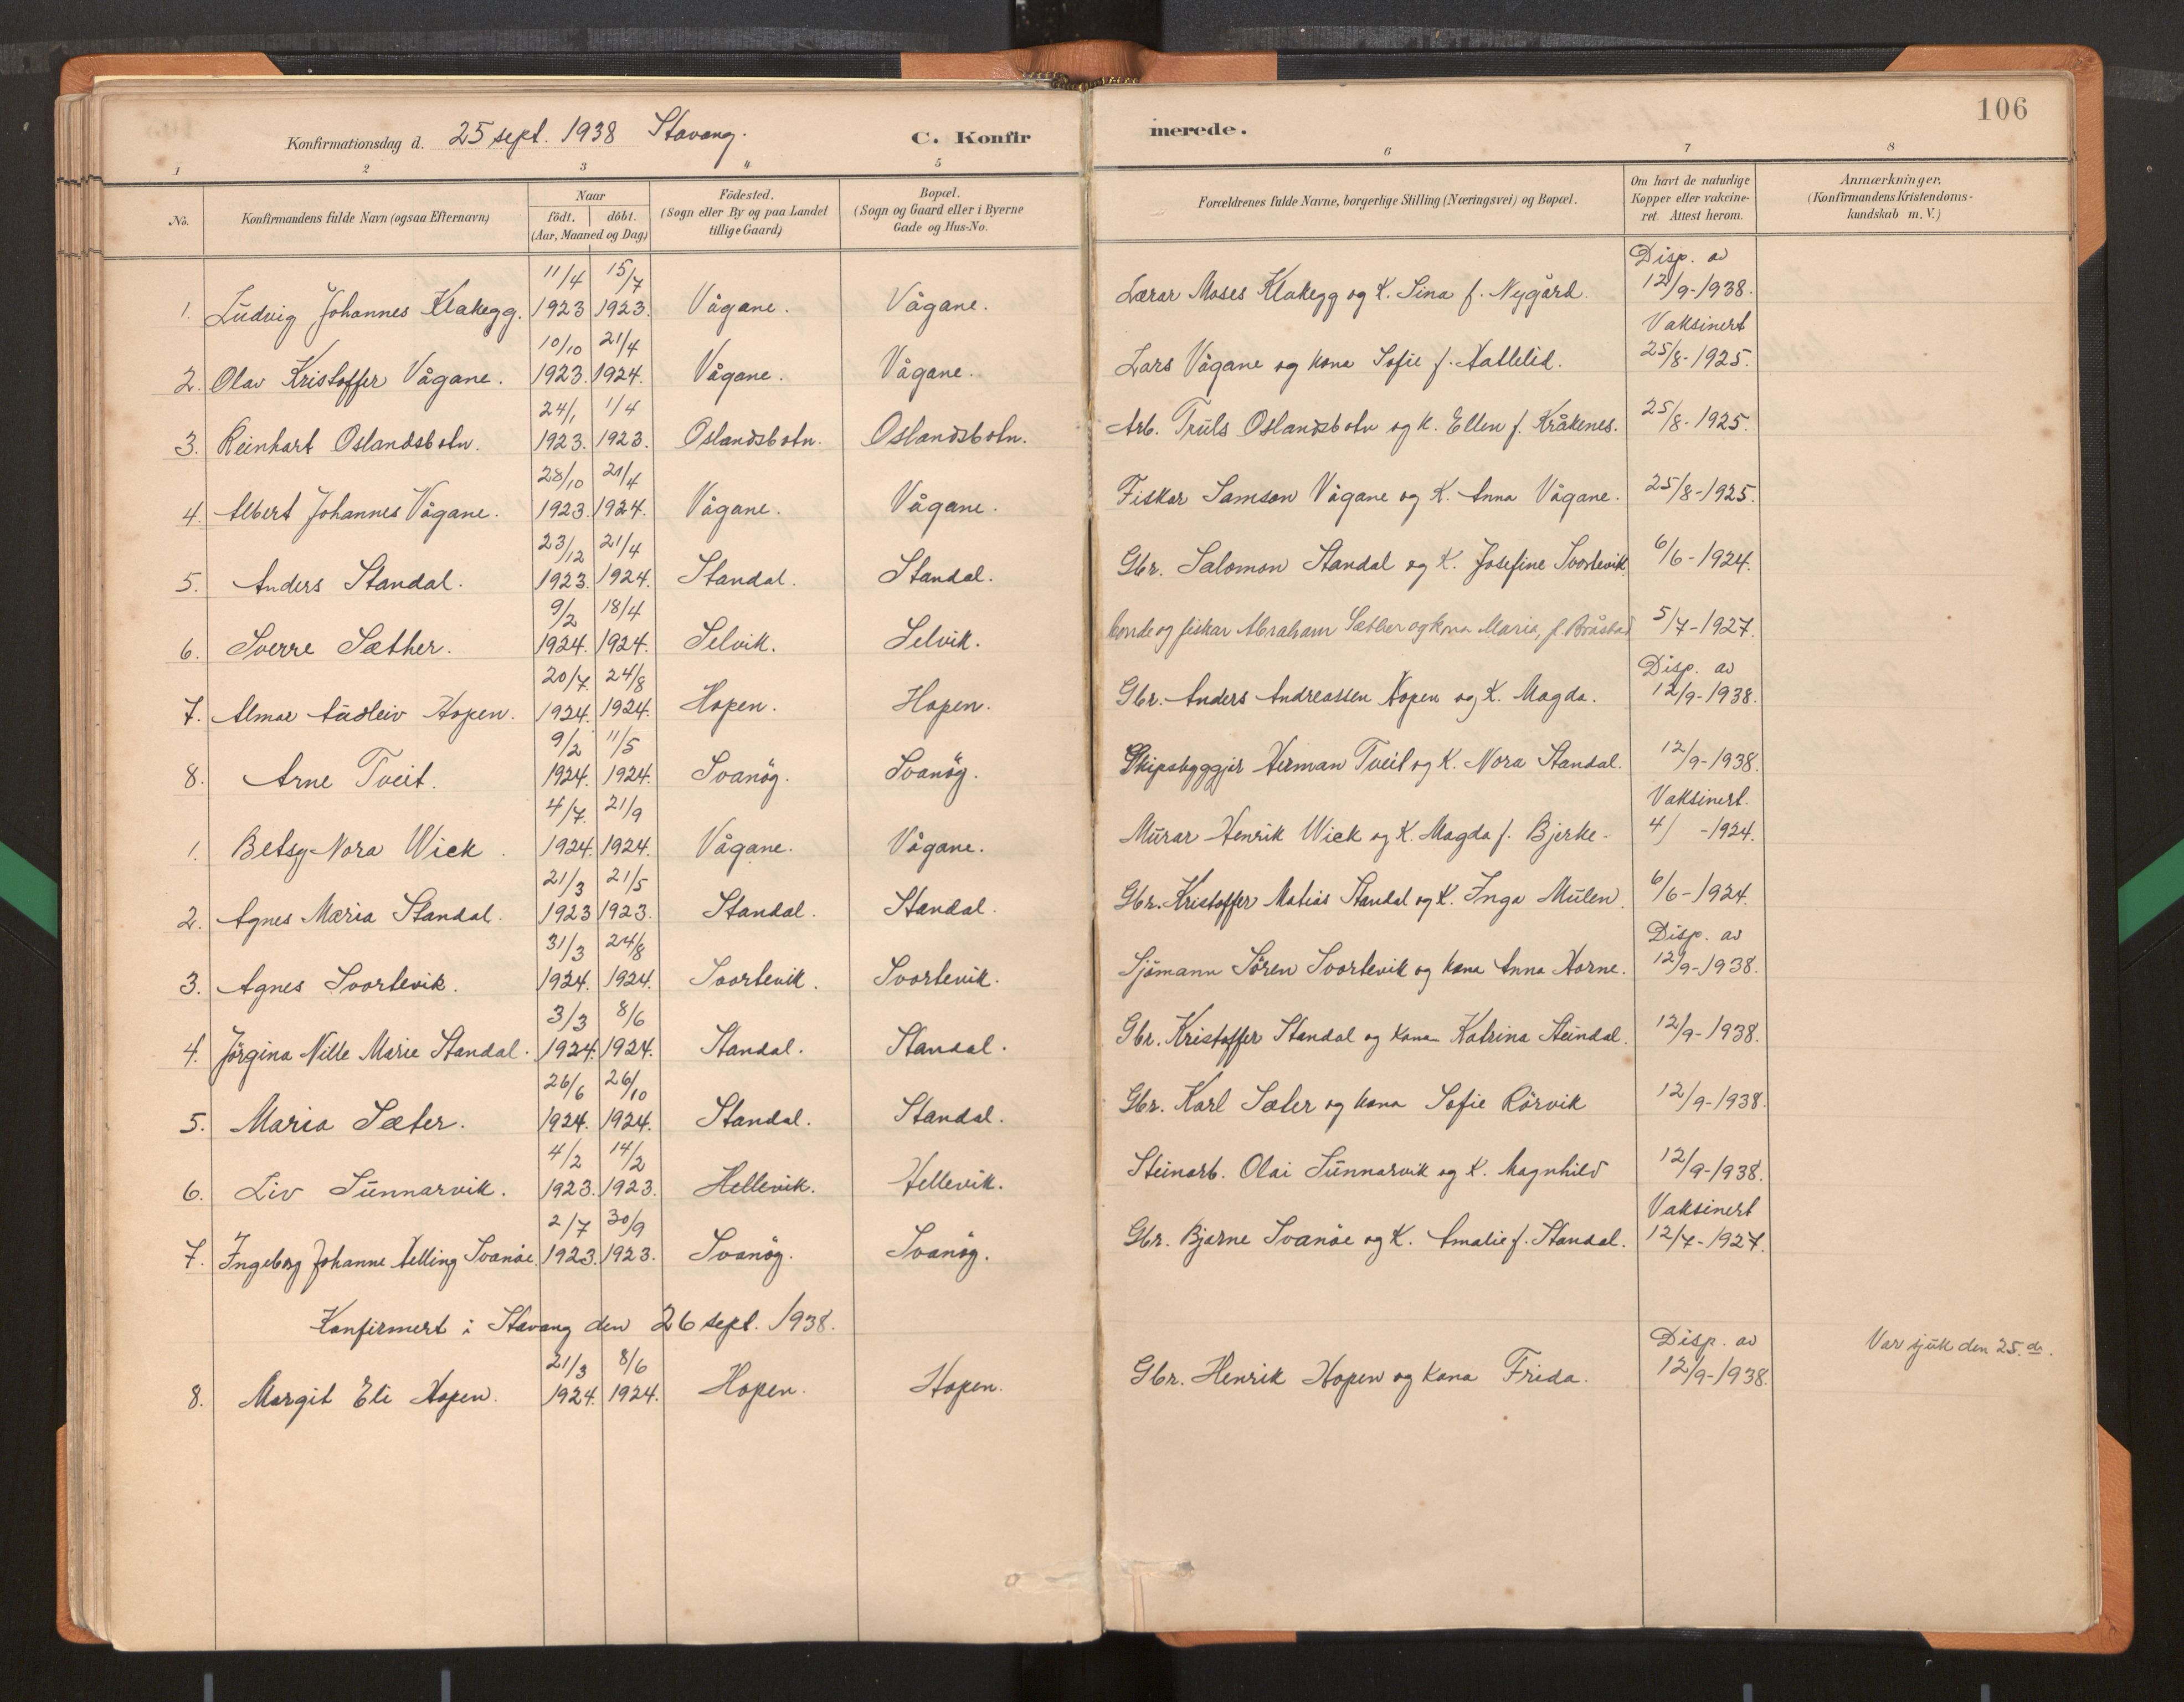 106
Konfirmationsdag d. 25 sept. 1938 Stavang. C. Konfirmerede.
1 2 3 4 5 6 7 8
No. Konfirmandens fulde Navn (ogsaa Efternavn) Naar födt. döbt. (Aar, Maaned og Dag) Födested. (Sogn eller By og paa Landet tillige Gaard) Bopæl. (Sogn og Gaard eller i Byerne Gade og Hus-No. Forældrenes fulde Navne, borgerlige Stilling (Næringsvei) og Bopæl. Om havt de naturlige Kopper eller vakcineret. Attest herom. Anmærkninger, (Konfirmandens Kristendomskundskab m. V.)
11/4 15/7 Disp. av
1. Ludvig Johannes Klakegg. 1923 1923. Vågane. Vågane. Lærar Moses Klakegg og K. Sina f. Nygård. 12/9-1938.
10/10 21/4 Vaksinert
2. Olav Kristoffer Vågane. 1923. 1924. Vågane. Vågane. Lars Vågane og kona Sofie f. Hatlelid. 25/8-1925.
24/1 1/4
3. Reinhart Oslandsbotn. 1923. 1923. Oslandsbotn. Oslandsbotn. Arb. Truls Oslandsbotn og K. Ellen f. Kråkenes. 25/8-1925.
28/10 21/4
4. Albert Johannes Vågane. 1923. 1924. Vågane. Vågane. Fiskar Samson Vågane og K. Anna Vågane. 25/8-1925.
23/12 21/4
5. Anders Standal. 1923. 1924. Standal. Standal. Gbr. Salomon Standal og K. Josefine Svortevik. 6/6-1924.
9/2 18/4
6. Sverre Sæther. 1924. 1924. Selvik. Selvik. bonde og fiskar Abraham Sæther og kona Maria, f. Bråstad 5/7-1927.
20/7 24/8 Disp. av
7. Almar Audleiv Hopen. 1924. 1924. Hopen. Hopen. Gbr. Anders Andreassen Hopen og K. Magda. 12/9-1938.
9/2 11/5
8. Arne Tveit. 1924. 1924. Svanöy. Svanöy. Skipsbyggjar Herman Tveit og K. Nora Standal. 12/9-1938.
4/7. 21/9 Vaksinert.
1. Betsy Nora Wick. 1924. 1924. Vågane. Vågane. Murar Henrik Wick og K. Magda f. Bjerke. 4/ -1924.
21/3 21/5
2. Agnes Maria Standal. 1923 1923. Standal. Standal. Gbr. Kristoffer Matias Standal og K. Inga Mulen. 6/6-1924.
31/3 24/8 Disp. av
3. Agnes Svortevik. 1924. 1924. Svortevik. Svortevik. Sjömann Sören Svortevik og kona Anna Horne. 12/9-1938.
3/3 8/6
4. Jörgina Nille Marie Standal. 1924. 1924. Standal. Standal. Gbr. Kristoffer Standal og kona Katrina Steindal. 12/9-1938.
26/6 26/10
5. Maria Sæter. 1924. 1924. Standal. Standal. Gbr. Karl Sæter og kona Sofie Rörvik 12/9-1938.
4/2 14/2
6. Liv Sunnarvik. 1923. 1923. Hellevik. Hellevik. Steinarb. Olai Sunnarvik og K. Magnhild 12/9-1938.
2/7 30/9 Vaksinert
7. Ingeborg Johanne Helling Svanöe. 1923. 1923. Svanöy. Svanöy. Gbr. Bjarne Svanöe og K. Amalie f. Standal. 12/7-1927.
Konfirmert i Stavang den 26 sept. 1938.
21/3 8/6 Disp. av Var sjuk den 25. de.
8. Margit Eli Hopen. 1924. 1924. Hopen. Hopen. Gbr. Henrik Hopen og kona Frida. 12/9-1938.